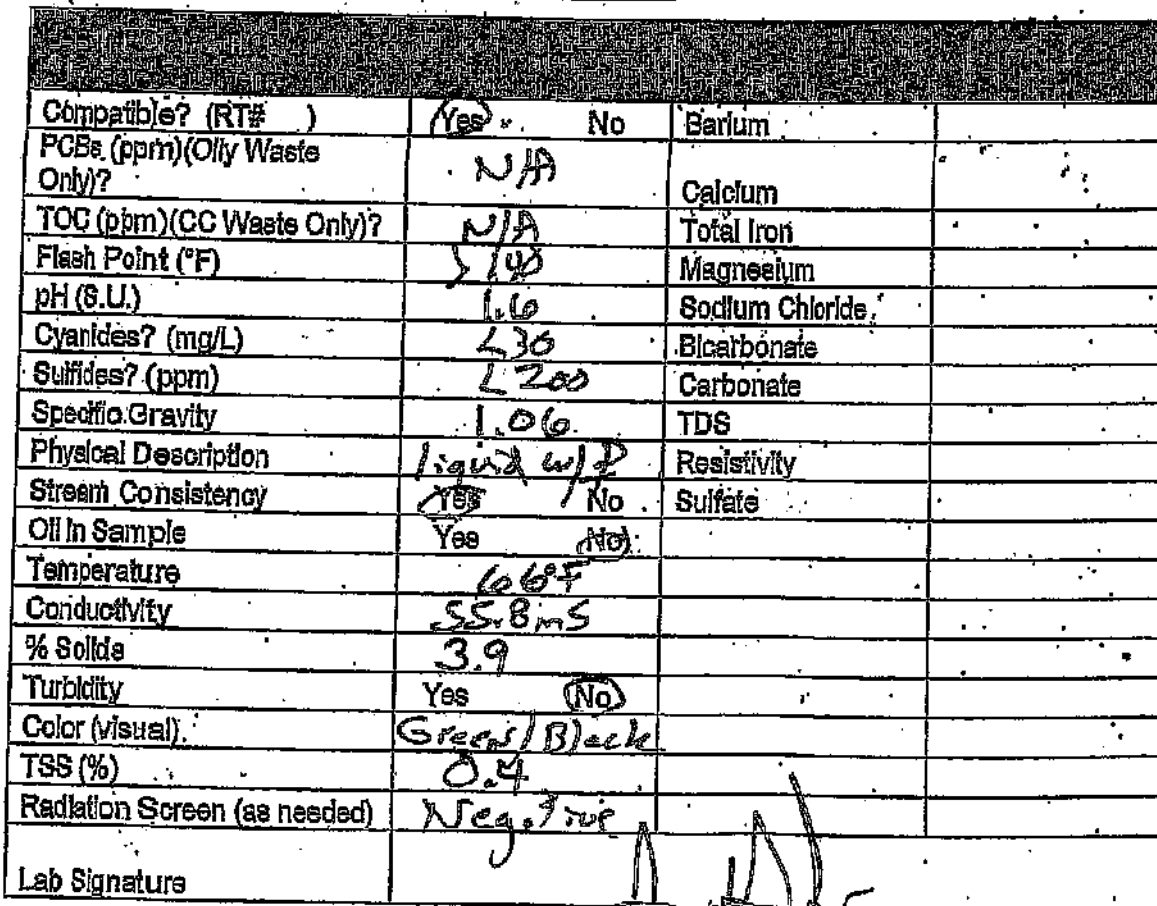 Compatible? (RT# ) Yes No Barium
PCBs (ppm)(Oily Waste
Only)? N/A Calcium
TOC (ppm)(CC Waste Only)? N/A Total Iron
Flash Point (°F) >140 Magnesium
pH (S.U.) 1.6 Sodium Chloride
Cyanides? (mg/L) <30 Bicarbonate
Sulfides? (ppm) <200 Carbonate
Specific Gravity 1.06 TDS
Physical Description liquid w/ Resistivity
Stream Consistency Yes No Sulfate
Oil in Sample Yes No
Temperature 66°F
Conductivity 55.8mS
% Solids 3.9
Turbidity Yes No
Color (visual) Green/Black
TSS (%) 0.4
Radiation Screen (as needed) Negative
Lab Signature